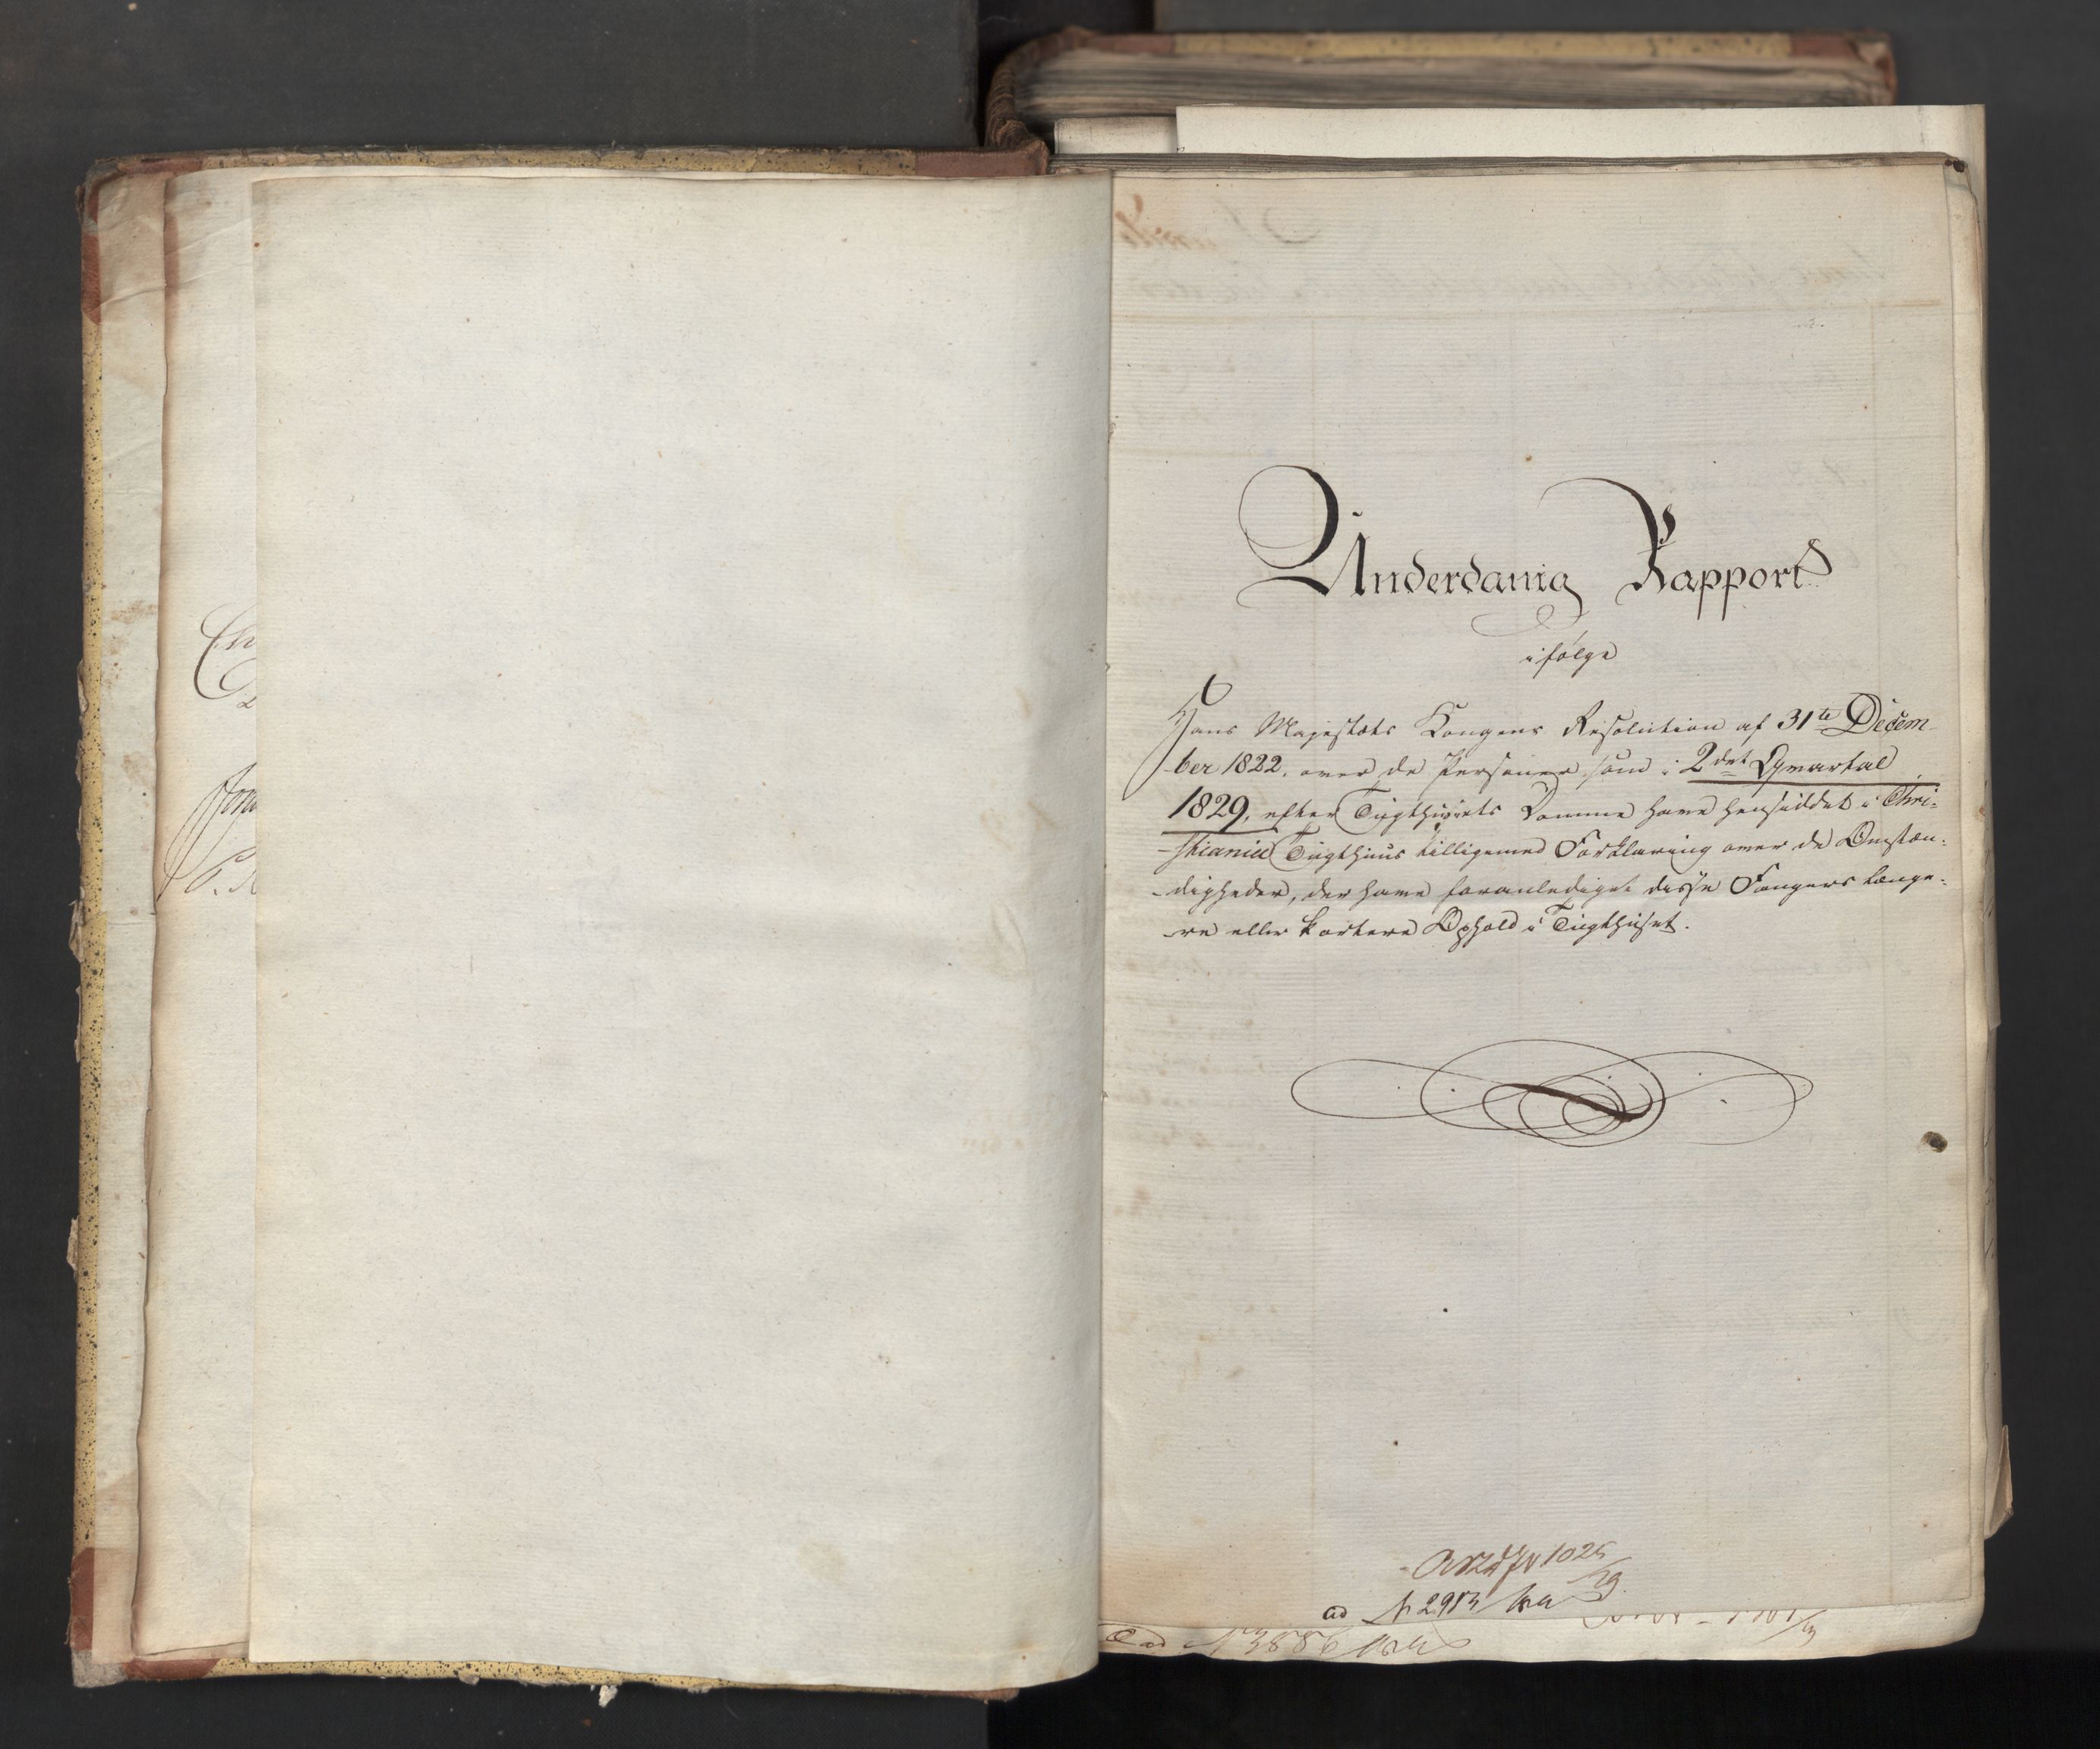 Underdanig Rapport
ifølge
Hans Majestæts Kongens Resolution af 31te Decem-
-ber 1822, over de Personer som i 2det Qvartal
1829, efter Tugthuusets Domme have hensiddet i Chri-
-stiania Tugthuus tilligemed Forklaring over de Omstæn-
-digheder, der have foranlediget disse Fangers længe-
-re eller kortere Ophold i Tugthuset.
1025
ad N 2913 29
ad N 3886